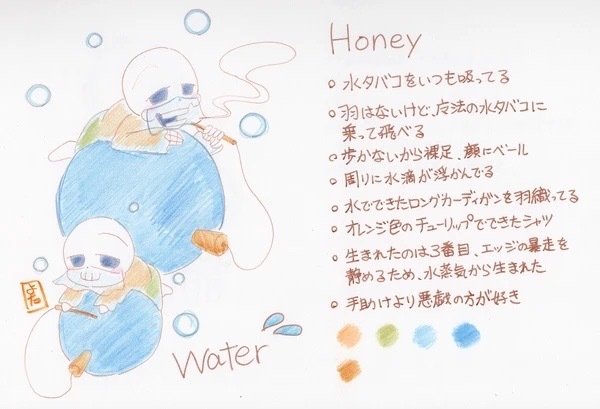 Honey
水タバコをいつも吸ってる
羽はないけど、魔法の水タバコに
乗って飛べる
歩かないから裸足、顔にベール
周りに水滴が浮かんでる
水でできたロングカーディガンを羽織ってる
オレンジ色のチューリップでできたシャツ
生まれたのは3番目、エッジの暴走を
静めるため、水蒸気から生まれた
手助けより悪戯の方が好き
Water